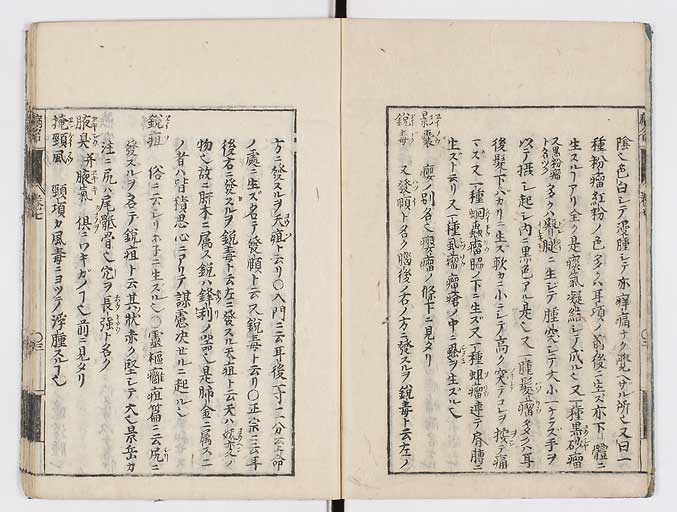 陰也色白シテ漫腫シテ亦痒痛ナク覺ヘザル所也又曰一
種粉瘤紅粉ノ色多クハ耳項ノ前後ニ生ズ亦下體ニ
生スルーアリ全ク是痰氣凝結シテ成ル也又一種黒砂瘤
又黒粉瘤ト名ヅク多クハ臀腿ニ生シテ腫突シテ大小一ナラズ手ヲ
以テ攝シ起シ内ニ黒色アル是也又一種髪瘤多クハ耳
後髪下バカリニ生ス軟カニ小ニシテ高ク突テコレヲ按テ痛
マズ又一種蛔蟲瘤脇下ニ生ズ又一種蛆瘤連テ肩膊ニ
生ズト云リ又一種虱瘤瘤ノ中ニ虱ヲ生ズル也
景嚢 癭ノ別名也癭瘤ノ條下ニ見タリ
鋭毒 又發頤ト名ク腦後ノ右ノ方ニ發スルヲ鋭毒ト云左ノ
方ニ發スルヲ夭疽ト云リ○入門ニ云耳後一寸二分致命
ノ處ニ生ズ名テ發頤ト云又鋭毒ト云リ○正宗ニ云耳
後右ニ發スルヲ鋭毒ト云左ニ發スルヲ夭疽ト云夭ハ妖変ノ
物也故ニ肝木ニ属ス鋭ハ鋒利ノ器也是肺金ニ属ス二
ノ者ハ皆積思心ニアリテ謀慮决セルニ起ル也
鋭疽 俗ニ云シリホ子ニ生ズル也○靈樞癰疽篇ニ云尻ニ
發スルヲ名テ鋭疽ト云其ノ状赤ク堅シテ大也景岳カ
注ニ尻ハ尾骶骨也穴ヲ長強ト名ク
腋臭 并腋氣 倶ニワキガノ也前ニ見タリ
掩頸風 頸項カ風毒ニヨツテ浮腫スル也